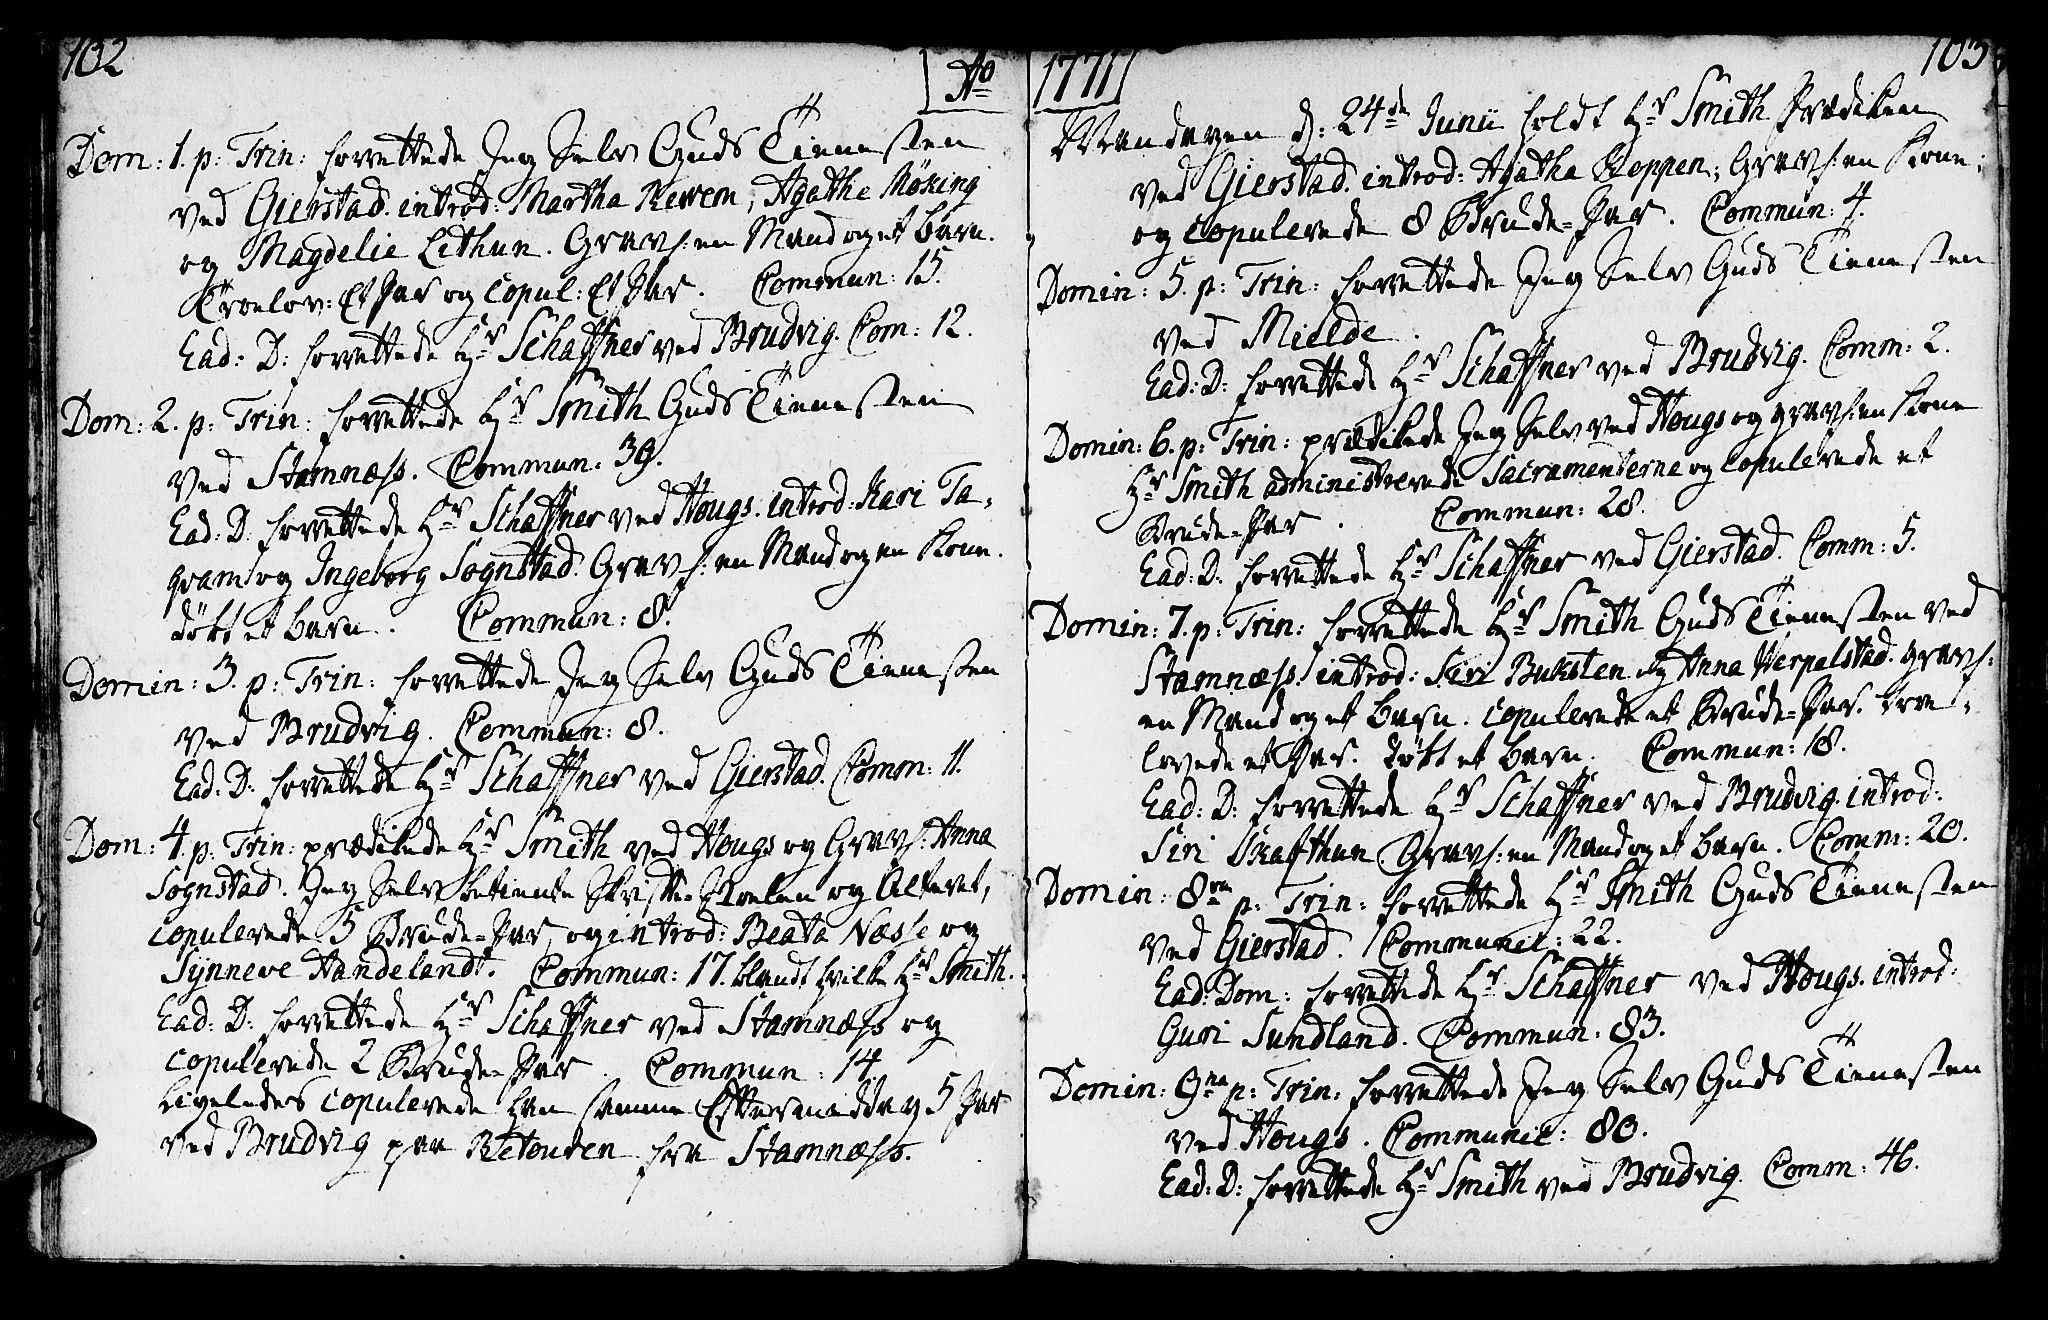 102
Ao
Dom: 1. p: Trin: forrettede Jeg Selv Guds Tienesten
ved Gierstad. introd: Martha Rewem, Agatha Røking
og Magdelie Lethun. Gravf: en Mand og et barn.
Troelov: Et Par og copul: Et Par. Commun: 15.
Ead: D: forrettede Hr Schaffner ved Brudvig. Com: 12.
Dom: 2. p: Trin: forrettede Hr Smith Guds Tienesten
ved Stamnæss. Commun: 39.
Ead: D: forrettede Hr Schaffner ved Hougs. introd: Kari Ta-
qvam og Ingeborg Sognstad. Gravf: en Mand og en Kone.
døbt et barn. Commun: 8.
Domin: 3. p: Trin: forrettede Jeg Selv Guds Tienesten
ved Brudvig. Commun: 8.
Ead: D: forrettede Hr Schaffner ved Gierstad. Comm: 11.
Dom: 4. p: Trin: prædikede Hr Smith ved Hougs og Gravf: Anna
Sognstad. Jeg Selv betiente Skrifte-Stolen og Alteret,
copulerede 5 Brude-Par, og introd: Beata Næsse og
Synneve Handeland. Commun: 17. blandt hvilke Hr Smith.
Ead: D: forrettede Hr Schaffner ved Stamnæss og
copulerede 2 Brude-Par. Commun: 14
Ligeledes copulerede han samme Eftermiddag 5 Par
ved Brudvig paa Retouren fra Stamnæss.
1771
103
Mandagen d: 24de Junii holdt Hr Smith Prædiken
ved Gierstad. introd: Agatha Reppen; Gravf: en Kone;
og copulerede 8 Brude-Par. Commun: 4.
Domin: 5. p: Trin: forrettede Jeg Selv Guds Tienesten
ved Mielde.
Ead: D: forrettede Hr Schaffner ved Brudvig. Comm: 2.
Domin: 6. p: Trin: prædikede Jeg Selv ved Hougs og gravf: en Kone
Hr Smith administrerede Sacramenterne og copulerede et
Brude-Par. Commun: 28.
Ead: D: forrettede Hr Schaffner ved Gierstad. Comm: 5.
Domin: 7. p: Trin: forrettede Hr Smith Guds Tienesten ved
Stamnæss. introd: Siri Buksten og Anna Verpelstad. gravf:
en Mand og et barn. copulerede et Brude-Par. troe-
lovede et Par. døbt et barn. Commun: 18.
Ead: D: forrettede Hr Schaffner ved Brudvig. introd:
Siri Skafthun. Gravf: en Mand og et barn. Comm: 20.
Domin: 8va p: Trin: forrettede Hr Smith Guds Tienesten
ved Gierstad. Communic: 22.
Ead: Dom: forrettede Hr Schaffner ved Hougs. introd:
Guri Sundland. Commun: 83.
Domin: 9na p: Trin: forrettede Jeg Selv Guds Tienesten
ved Hougs. Communic: 80.
Ead: D: forrettede Hr Smith ved Brudvig. Comm: 46.